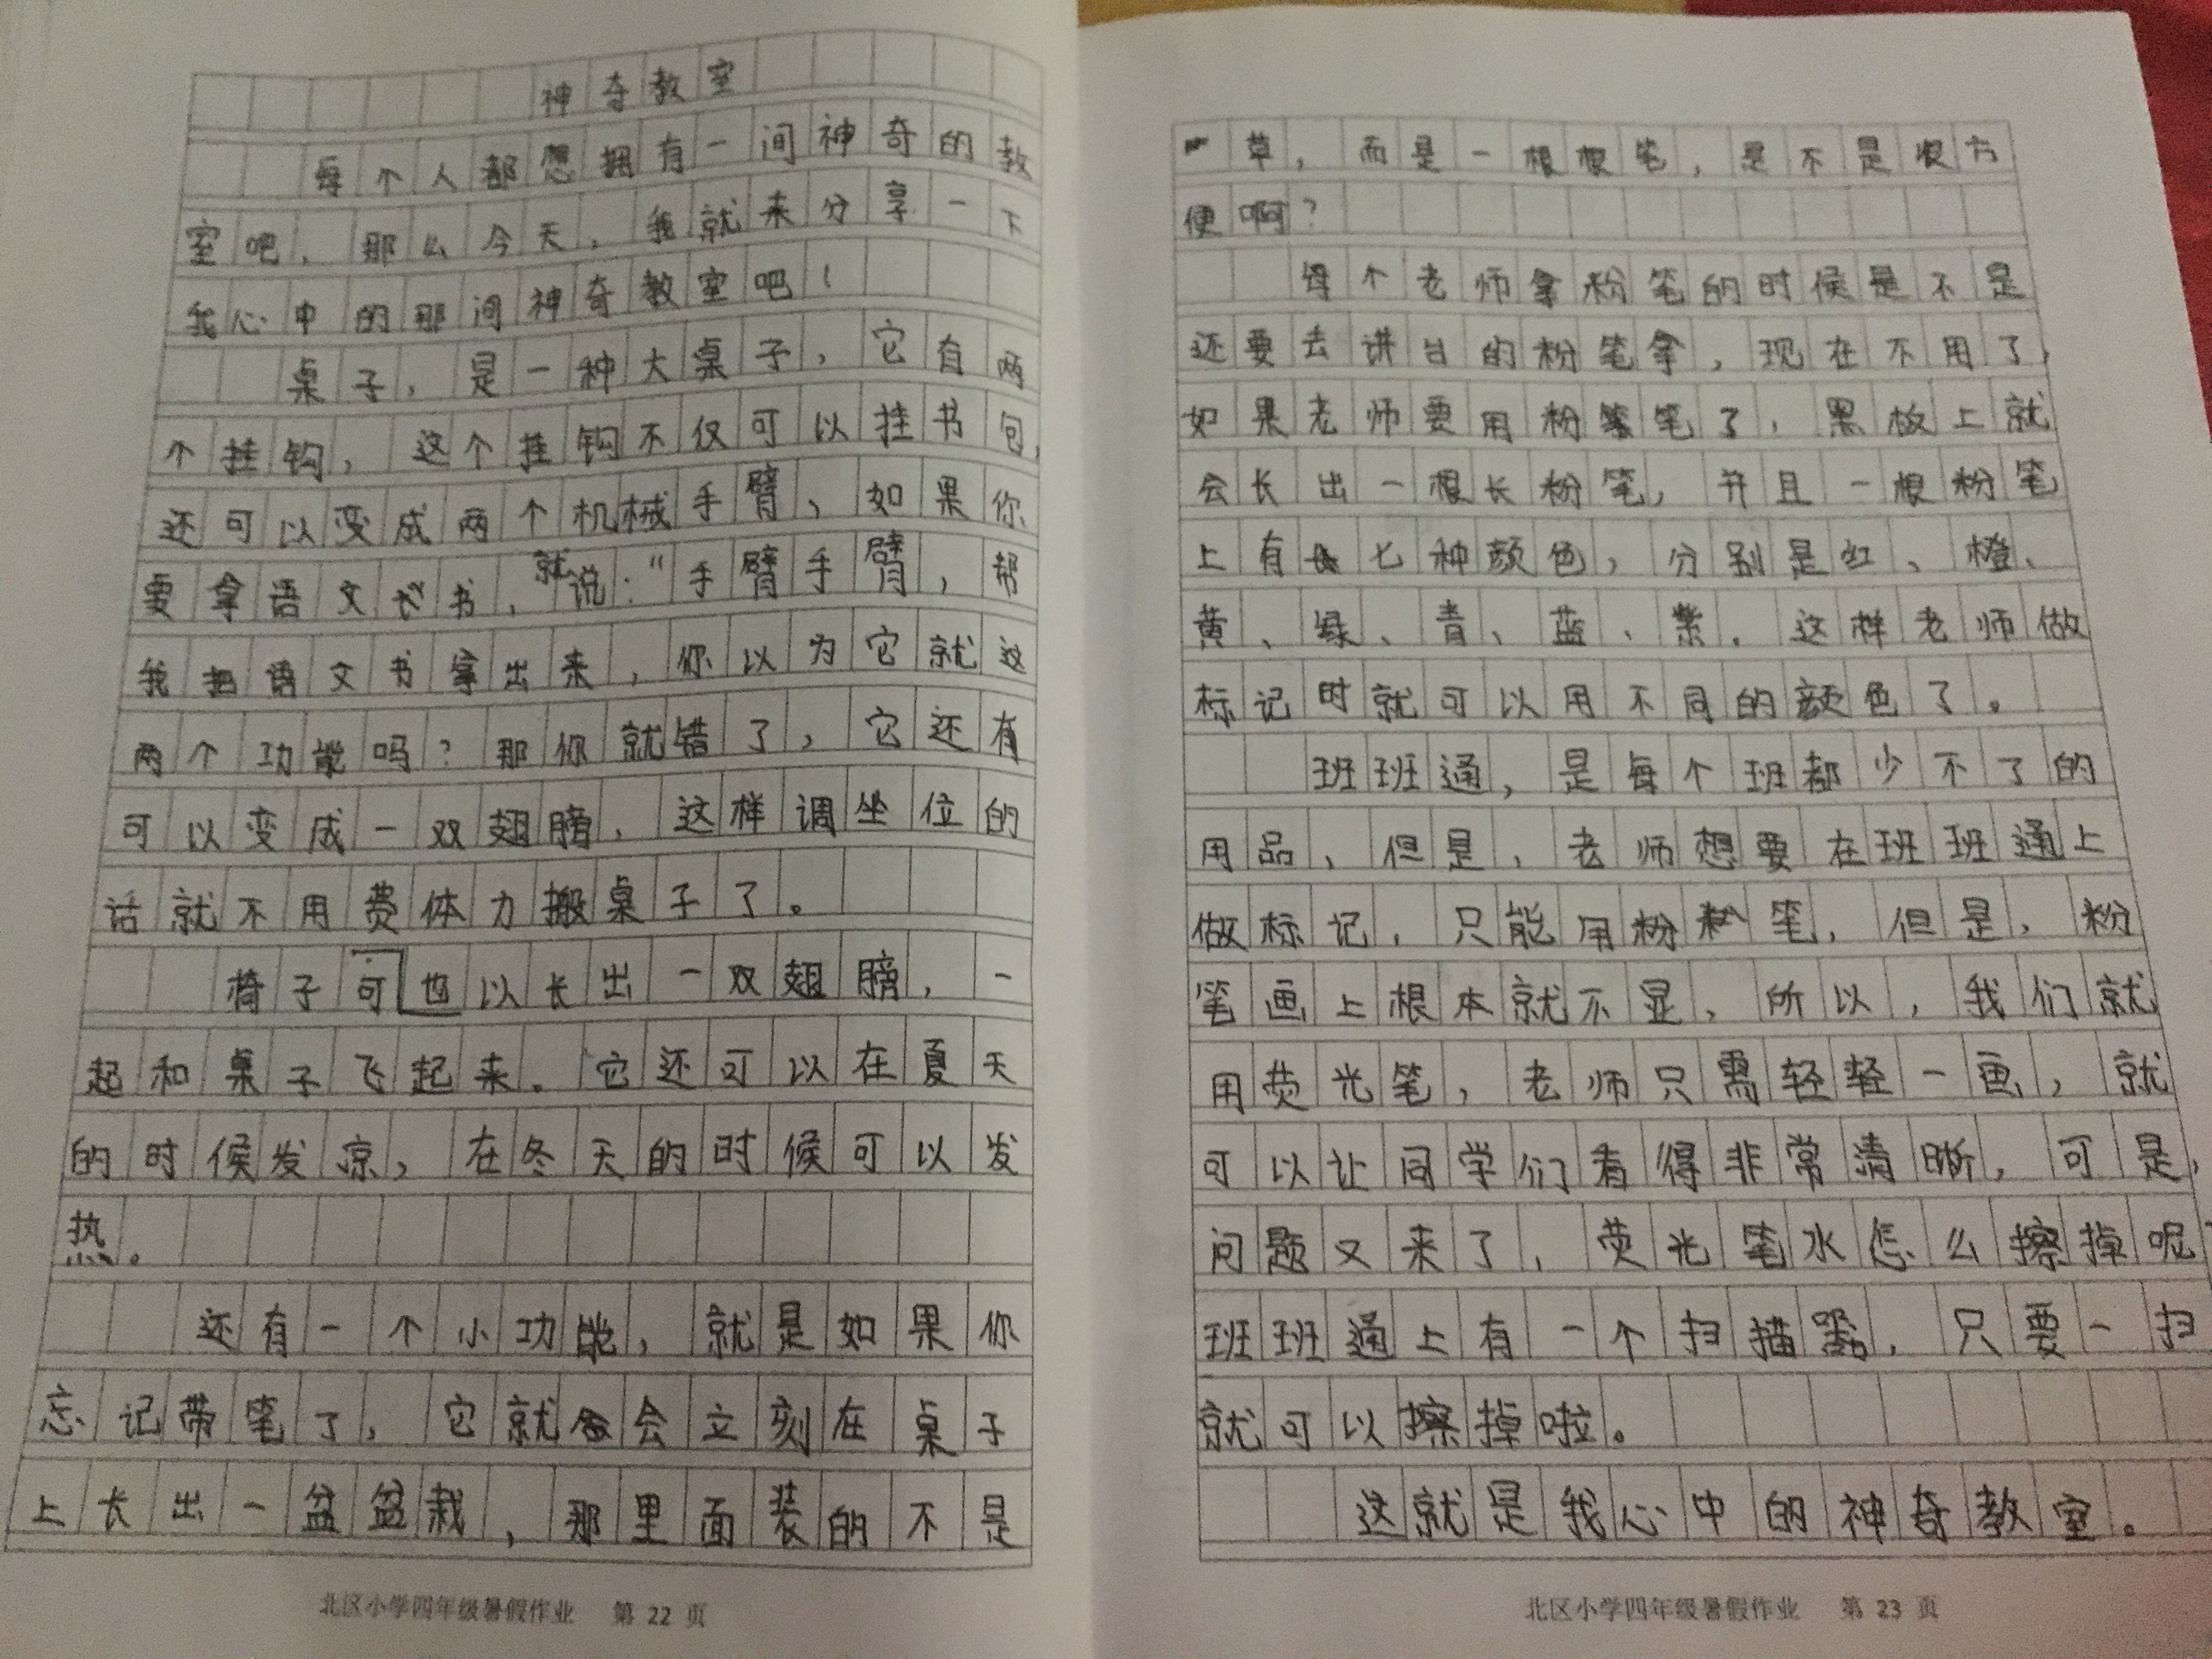 神奇教室
每个人都想拥有一间神奇的教
室吧，那么今天，我就来分享一下
我心中的那间神奇教室吧！
桌子，是一种大桌子，它有两
个挂钩，这个挂钩不仅可以挂书包，
还可以变成两个机械手臂，如果你
要拿语文书，就说："手臂手臂，帮
我把语文书拿出来，你以为它就这
两个功能吗？那你就错了，它还有
可以变成一双翅膀，这样调坐位的
话就不用费体力搬桌子了。
椅子也可以长出一双翅膀，一
起和桌子飞起来。它还可以在夏天
的时候发凉，在冬天的时候可以发
热。
还有一个小功能，就是如果你
忘记带笔了，它就会立刻在桌子
上长出一盆盆栽，那里面装的不是
草，而是一根根笔，是不是很方
便啊？
每个老师拿粉笔的时候是不是
还要去讲台的粉笔拿，现在不用了，
如果老师要用粉笔了，黑板上就
会长出一根长粉笔，并且一根粉笔
上有七种颜色，分别是红、橙、
黄、绿、青、蓝、紫，这样老师做
标记时就可以用不同的颜色了。
班班通，是每个班都少不了的
用品，但是，老师想要在班班通上
做标记，只能用粉笔，但是，粉
笔画上根本就不显，所以，我们就
用荧光笔，老师只需轻轻一画，就
可以让同学们看得非常清晰，可是，
问题又来了，荧光笔水怎么擦掉呢？
班班通上有一个扫描器，只要一扫
就可以擦掉啦。
这就是我心中的神奇教室。
北区小学四年级暑假作业 第 22 页
北区小学四年级暑假作业 第 23 页